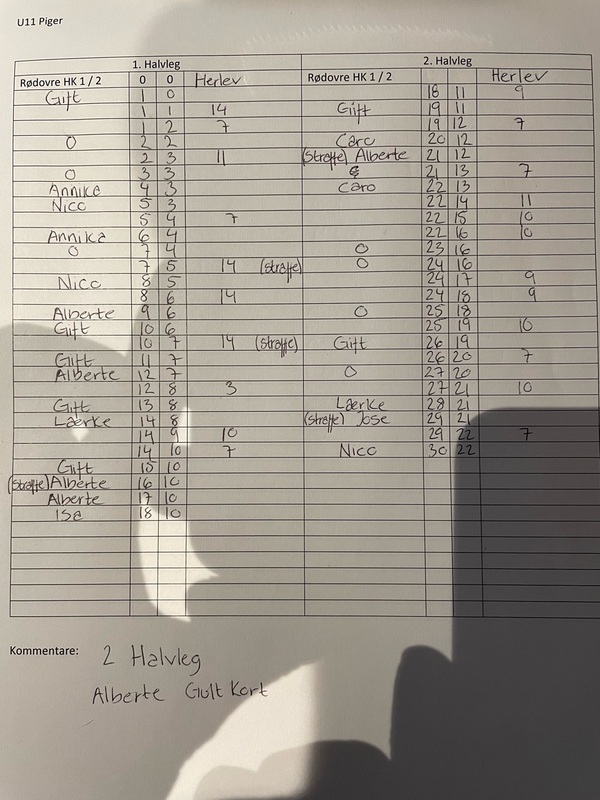 U11 Piger
1. Halvleg 2. Halvleg
Rødovre HK 1 / 2 0 0 Herlev Rødovre HK 1 / 2 Herlev
Gift 1 0 18 11 9
1 1 14 Gift 19 11
1 2 7 19 12 7
O 2 2 Caro 20 12
2 3 11 (Straffe) Alberte 21 12
O 3 3 21 13 7
Annika 4 3 Caro 22 13
Nico 5 3 22 14 11
5 4 7 22 15 10
Annika 6 4 22 16 10
O 7 4 O 23 16
7 5 14 (straffe) O 24 16
Nico 8 5 24 17 9
8 6 14 24 18 9
Alberte 9 6 O 25 18
Gift 10 6 25 19 10
10 7 14 (straffe) Gift 26 19
Gift 11 7 26 20 7
Alberte 12 7 O 27 20
12 8 3 27 21 10
Gift 13 8 Lærke 28 21
Lærke 14 8 (straffe) Jose 29 21
14 9 10 29 22 7
14 10 7 Nico 30 22
Gift 15 10
(Straffe) Alberte 16 10
Alberte 17 10
Isa 18 10
Kommentare: 2 Halvleg
Alberte Gult Kort